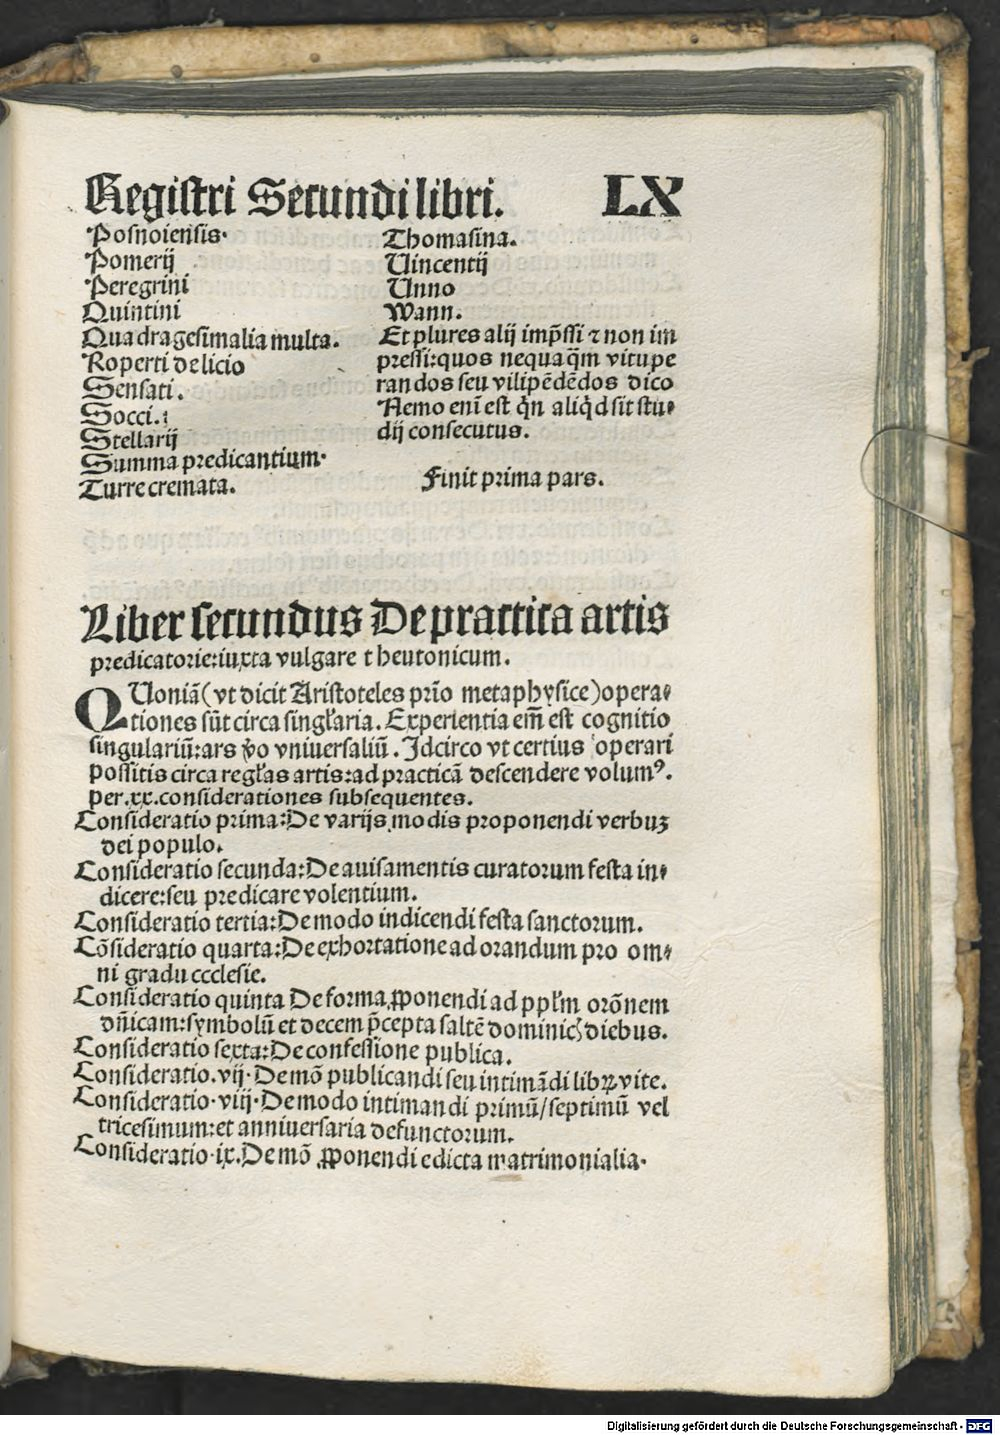 Registri Secundi libri. LX
Posnoiensis.
Pomerij
Peregrini
Quintini
Quadragesimalia multa.
Roperti de licio
Sensati.
Socci.
Stellarij
Summa predicantium.
Turre cremata.
Thomasina.
Vincentij
Vnno
Wann.
Et plures alij imp̄ssi ⁊ non im
pressi:quos nequaq̄m vitupe
randos seu vilipēdēdos dico
Nemo eni̅ est qͥn aliqͥd sit stu⸗
dij consecutus.
Finit prima pars.
Liber secundus De practica artis
predicatorie:iuxta vulgare theutonicum.
QUoniā(vt dicit Aristoteles prīo metaphysice)opera⸗
tiones sūt circa singl̓aria. Experientia em̄ est cognitio
singulariū:ars ꝟo vniuersaliū. Idcirco vt certius operari
possitis circa regl̓as artis:ad practicā descendere volumꝰ.
per.xx.considerationes subsequentes.
Consideratio prima:De varijs modis proponendi verbuꝫ
dei populo.
Consideratio secunda:De auisamentis curatorum festa in⸗
dicere:seu predicare volentium.
Consideratio tertia:De modo indicendi festa sanctorum.
Cōsideratio quarta:De exhortatione ad orandum pro om⸗
ni gradu ccclesie.
Consideratio quinta De forma ꝓponendi ad ppl̓m orōnem
dn̄icam:symbolū et decem p̄cepta saltē dominicꝭ diebus.
Consideratio sexta:De confessione publica.
Consideratio.vij.De mō publicandi seu intimādi libꝝ vite.
Consideratio.viij.De modo intimandi primū/septimū vel
tricesimum:et anniuersaria defunctorum.
Consideratio.ix.De mō ꝓponendi edicta matrimonialia.
Digitalisierung gefördert durch die Deutsche Forschungsgemeinschaft - DFG